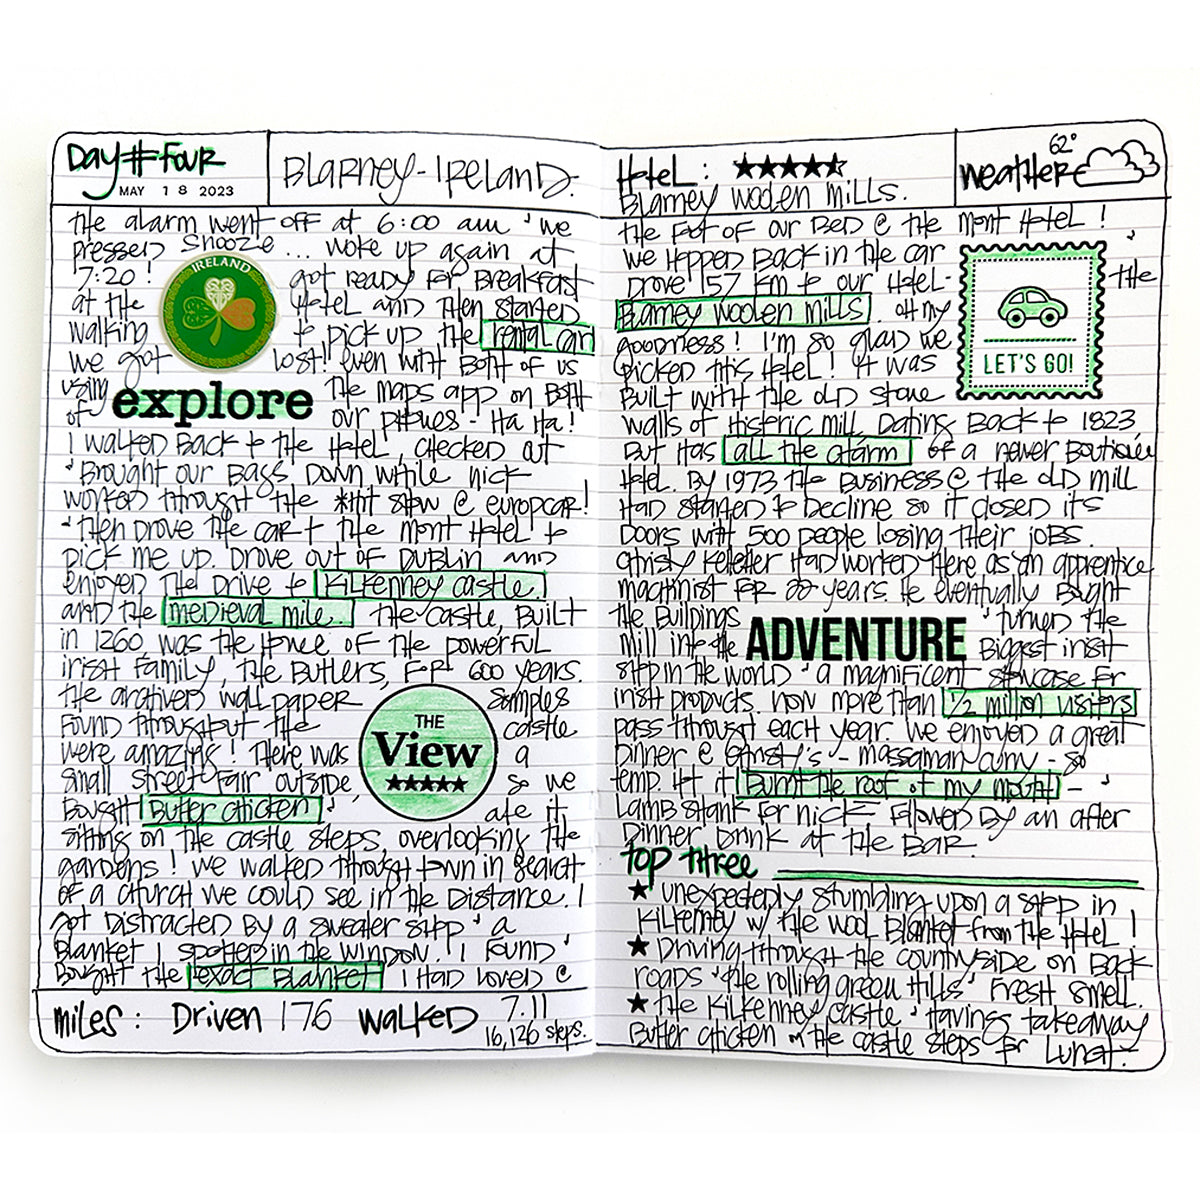 Day # Four
MAY 18 2023
Blarney - Ireland.
the alarm went off at 6:00 am & we
pressed snooze ... woke up again at
7:20! got ready for Breakfast
IRELAND
at the Hotel and then started
walking to pick up the rental car
we got lost!! even with Both of us
using the maps app on Both
explore
of our phones - Ha Ha!
I walked Back to the Hotel, checked out
& Brought our Bags Down while Nick
worked through the *hit show @ europcar!
& then drove the car to the mont Hotel to
pick me up. Drove out of Dublin and
enjoyed the Drive to Kilkenney castle
and the medieval mile. The castle, Built
in 1260, was the Home of the powerful
irish family, the Butlers, for 600 years.
the archived wall paper samples
found throughout the castle
were amazing! There was a
THE
View
small street fair outside so we
Bought Butter chicken & ate it
sitting on the castle steps, overlooking the
gardens! we walked through town in search
of a church we could see in the Distance. I
got Distracted By a sweater shop & a
Blanket I spotted in the window. I found &
Bought the exact Blanket I Had loved @
miles: Driven 176 walked 7.11
16,126 steps.
Hotel: ★★★★★
Blarney woolen mills.
62°
weather
the foot of our Bed @ the mont Hotel!
we Hopped Back in the car &
Drove 157 km to our Hotel - the
Blarney woolen mills. oh my
goodness! I'm so glad we
picked this Hotel! it was
LET'S GO!
Built with the old stone
walls of Historic mill, Dating Back to 1823,
But Has all the charm of a newer Boutique
Hotel. By 1973 the Business @ the old mill
Had started to Decline so it closed its
Doors with 500 people losing their jobs.
Christy Kelleher Had worked there as an apprentice
machinist for 22 years. He eventually Bought
the Buildings & turned the
mill into the Biggest irish
ADVENTURE
shop in the world & a magnificent showcase for
irish products. now more than 1/2 million visitors
pass through each year. we enjoyed a great
Dinner @ Christy's - massaman curry - so
temp. Hot it Burnt the roof of my mouth - &
Lamb shank for Nick followed by an after
Dinner Drink at the Bar.
top three
★ unexpectedly stumbling upon a shop in
Kilkenney w/ the wool Blanket from the Hotel!
★ Driving through the countryside on Back
roads & the rolling green Hills & fresh smell.
★ the Kilkenney castle & Having takeaway
Butter chicken on the castle steps for Lunch.